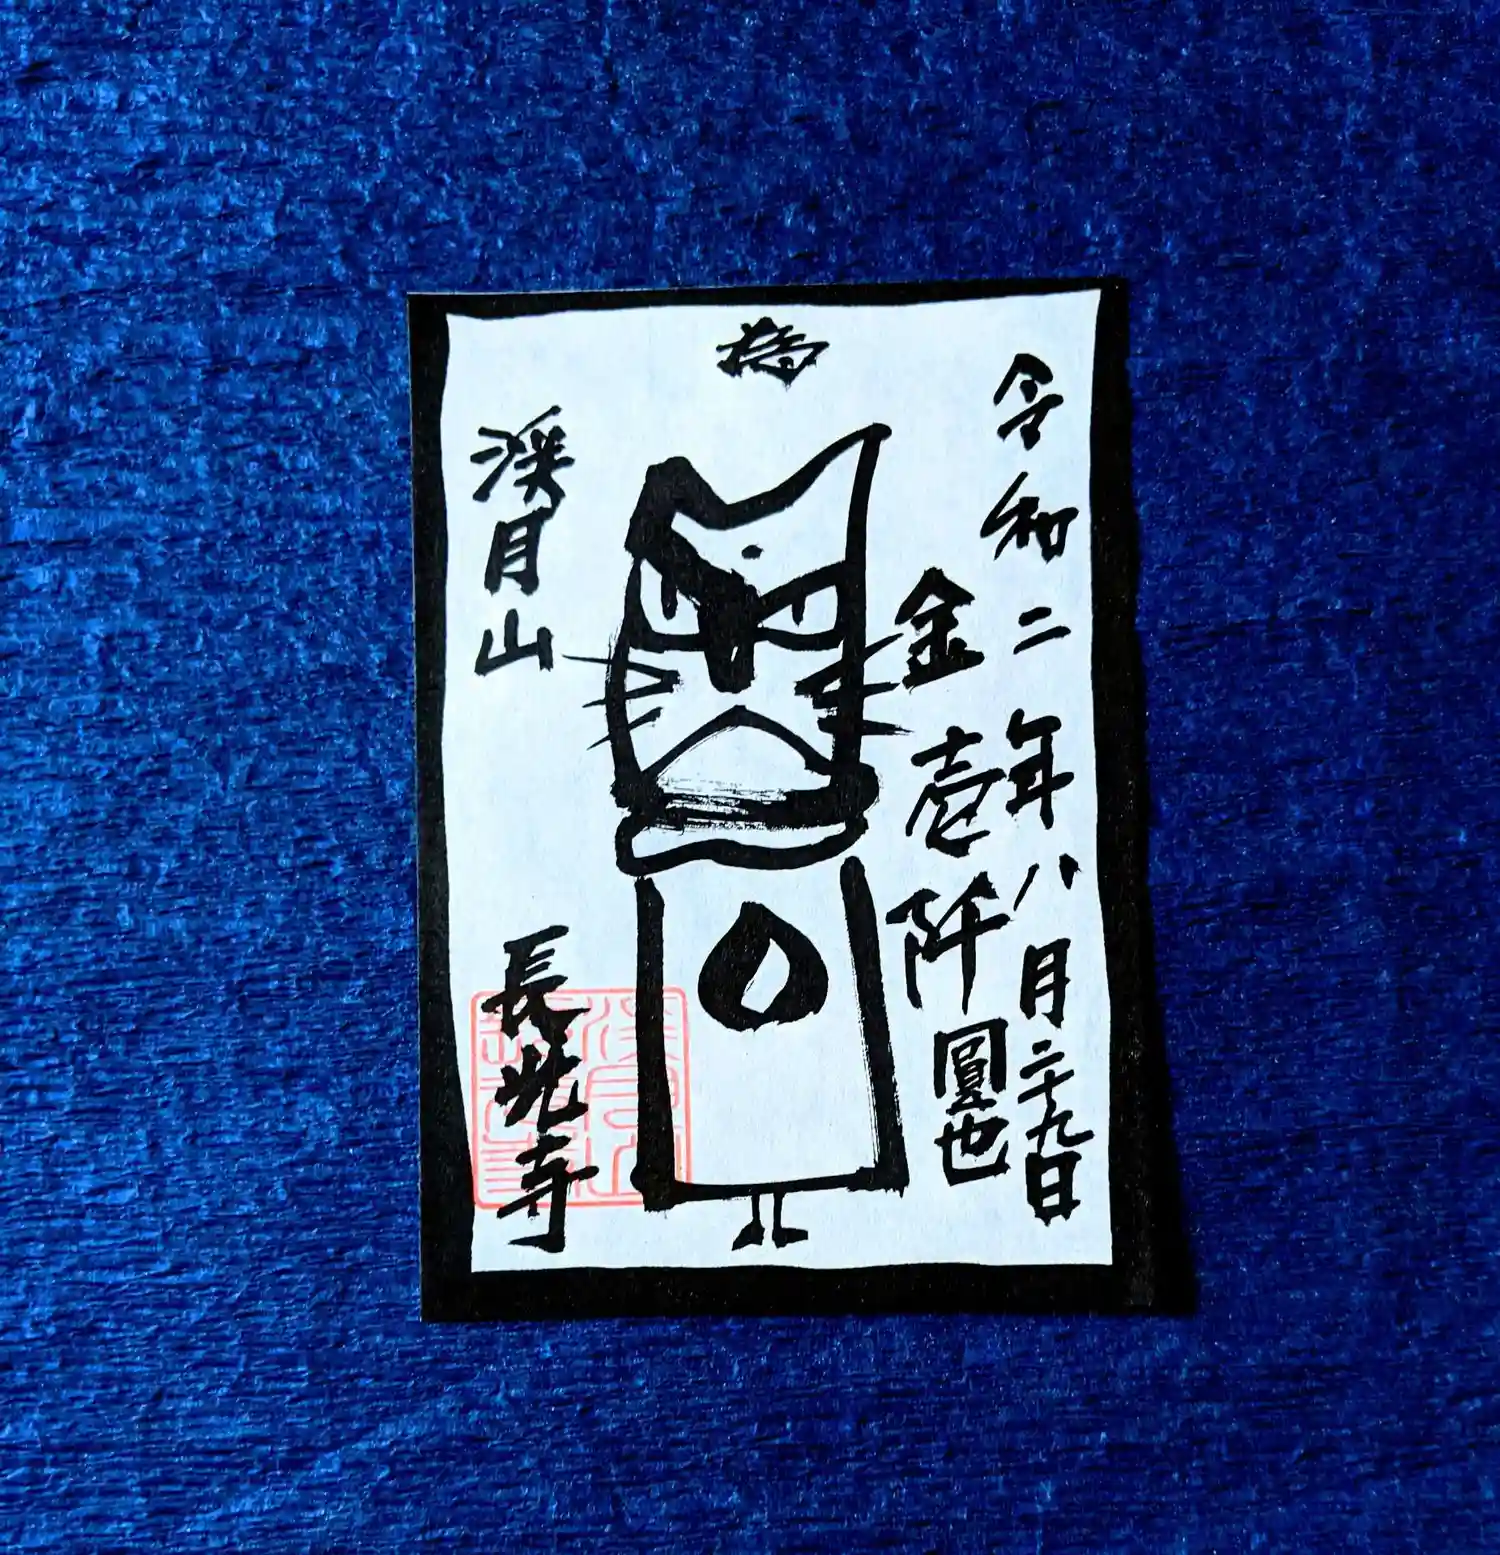 為
令和二年八月二十九日
金壱阡圓也
渓月山
長光寺